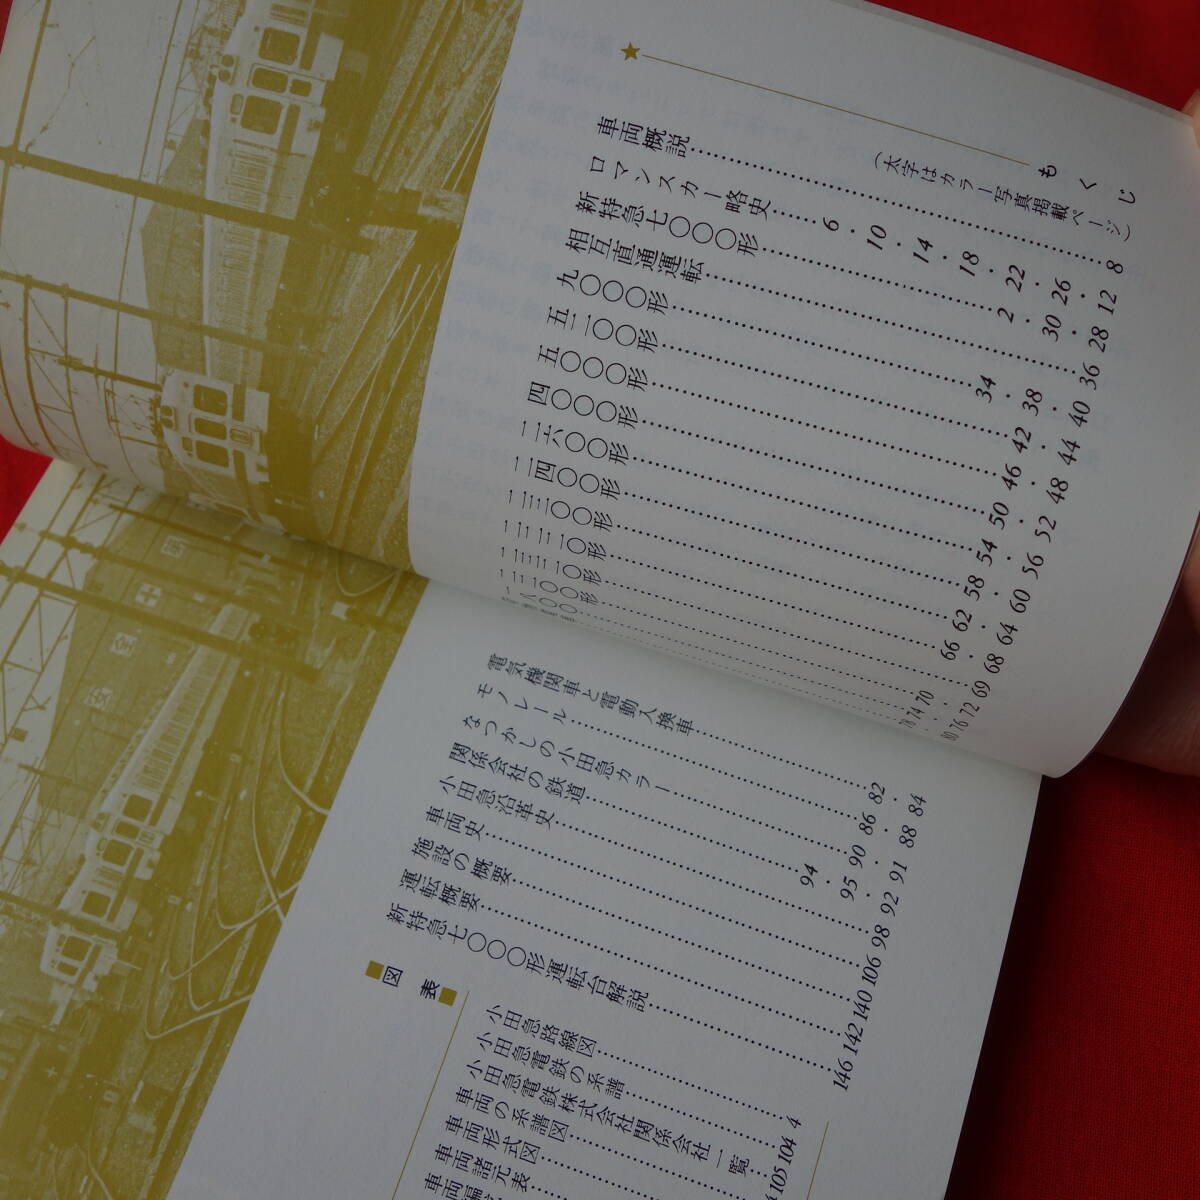 もくじ
(太字はカラー写真掲載ページ)
車両概説 8
ロマンスカー略史 6・10・14・18・22・26・12
新特急七〇〇〇形 2・30・28
相互直通運転 36
九〇〇〇形 34・38・40
五二〇〇形 42・44
五〇〇〇形 46・48
四〇〇〇形 50・52
二六〇〇形 54・56
二四〇〇形 58・60
62・64
66・68
69
70・72
74・76
電気機関車と電動入換車 82・84
モノレール 86・88
なつかしの小田急カラー 90・91
関係会社の鉄道 94・95・92
小田急沿革史 98
車両史 106
施設の概要 140
運転概要 142
新特急七〇〇〇形運転台解説 146
■図表■
小田急路線図 4
小田急電鉄の系譜 104
小田急電鉄株式会社関係会社一覧 105
車両の系譜図
車両形式図
車両諸元表